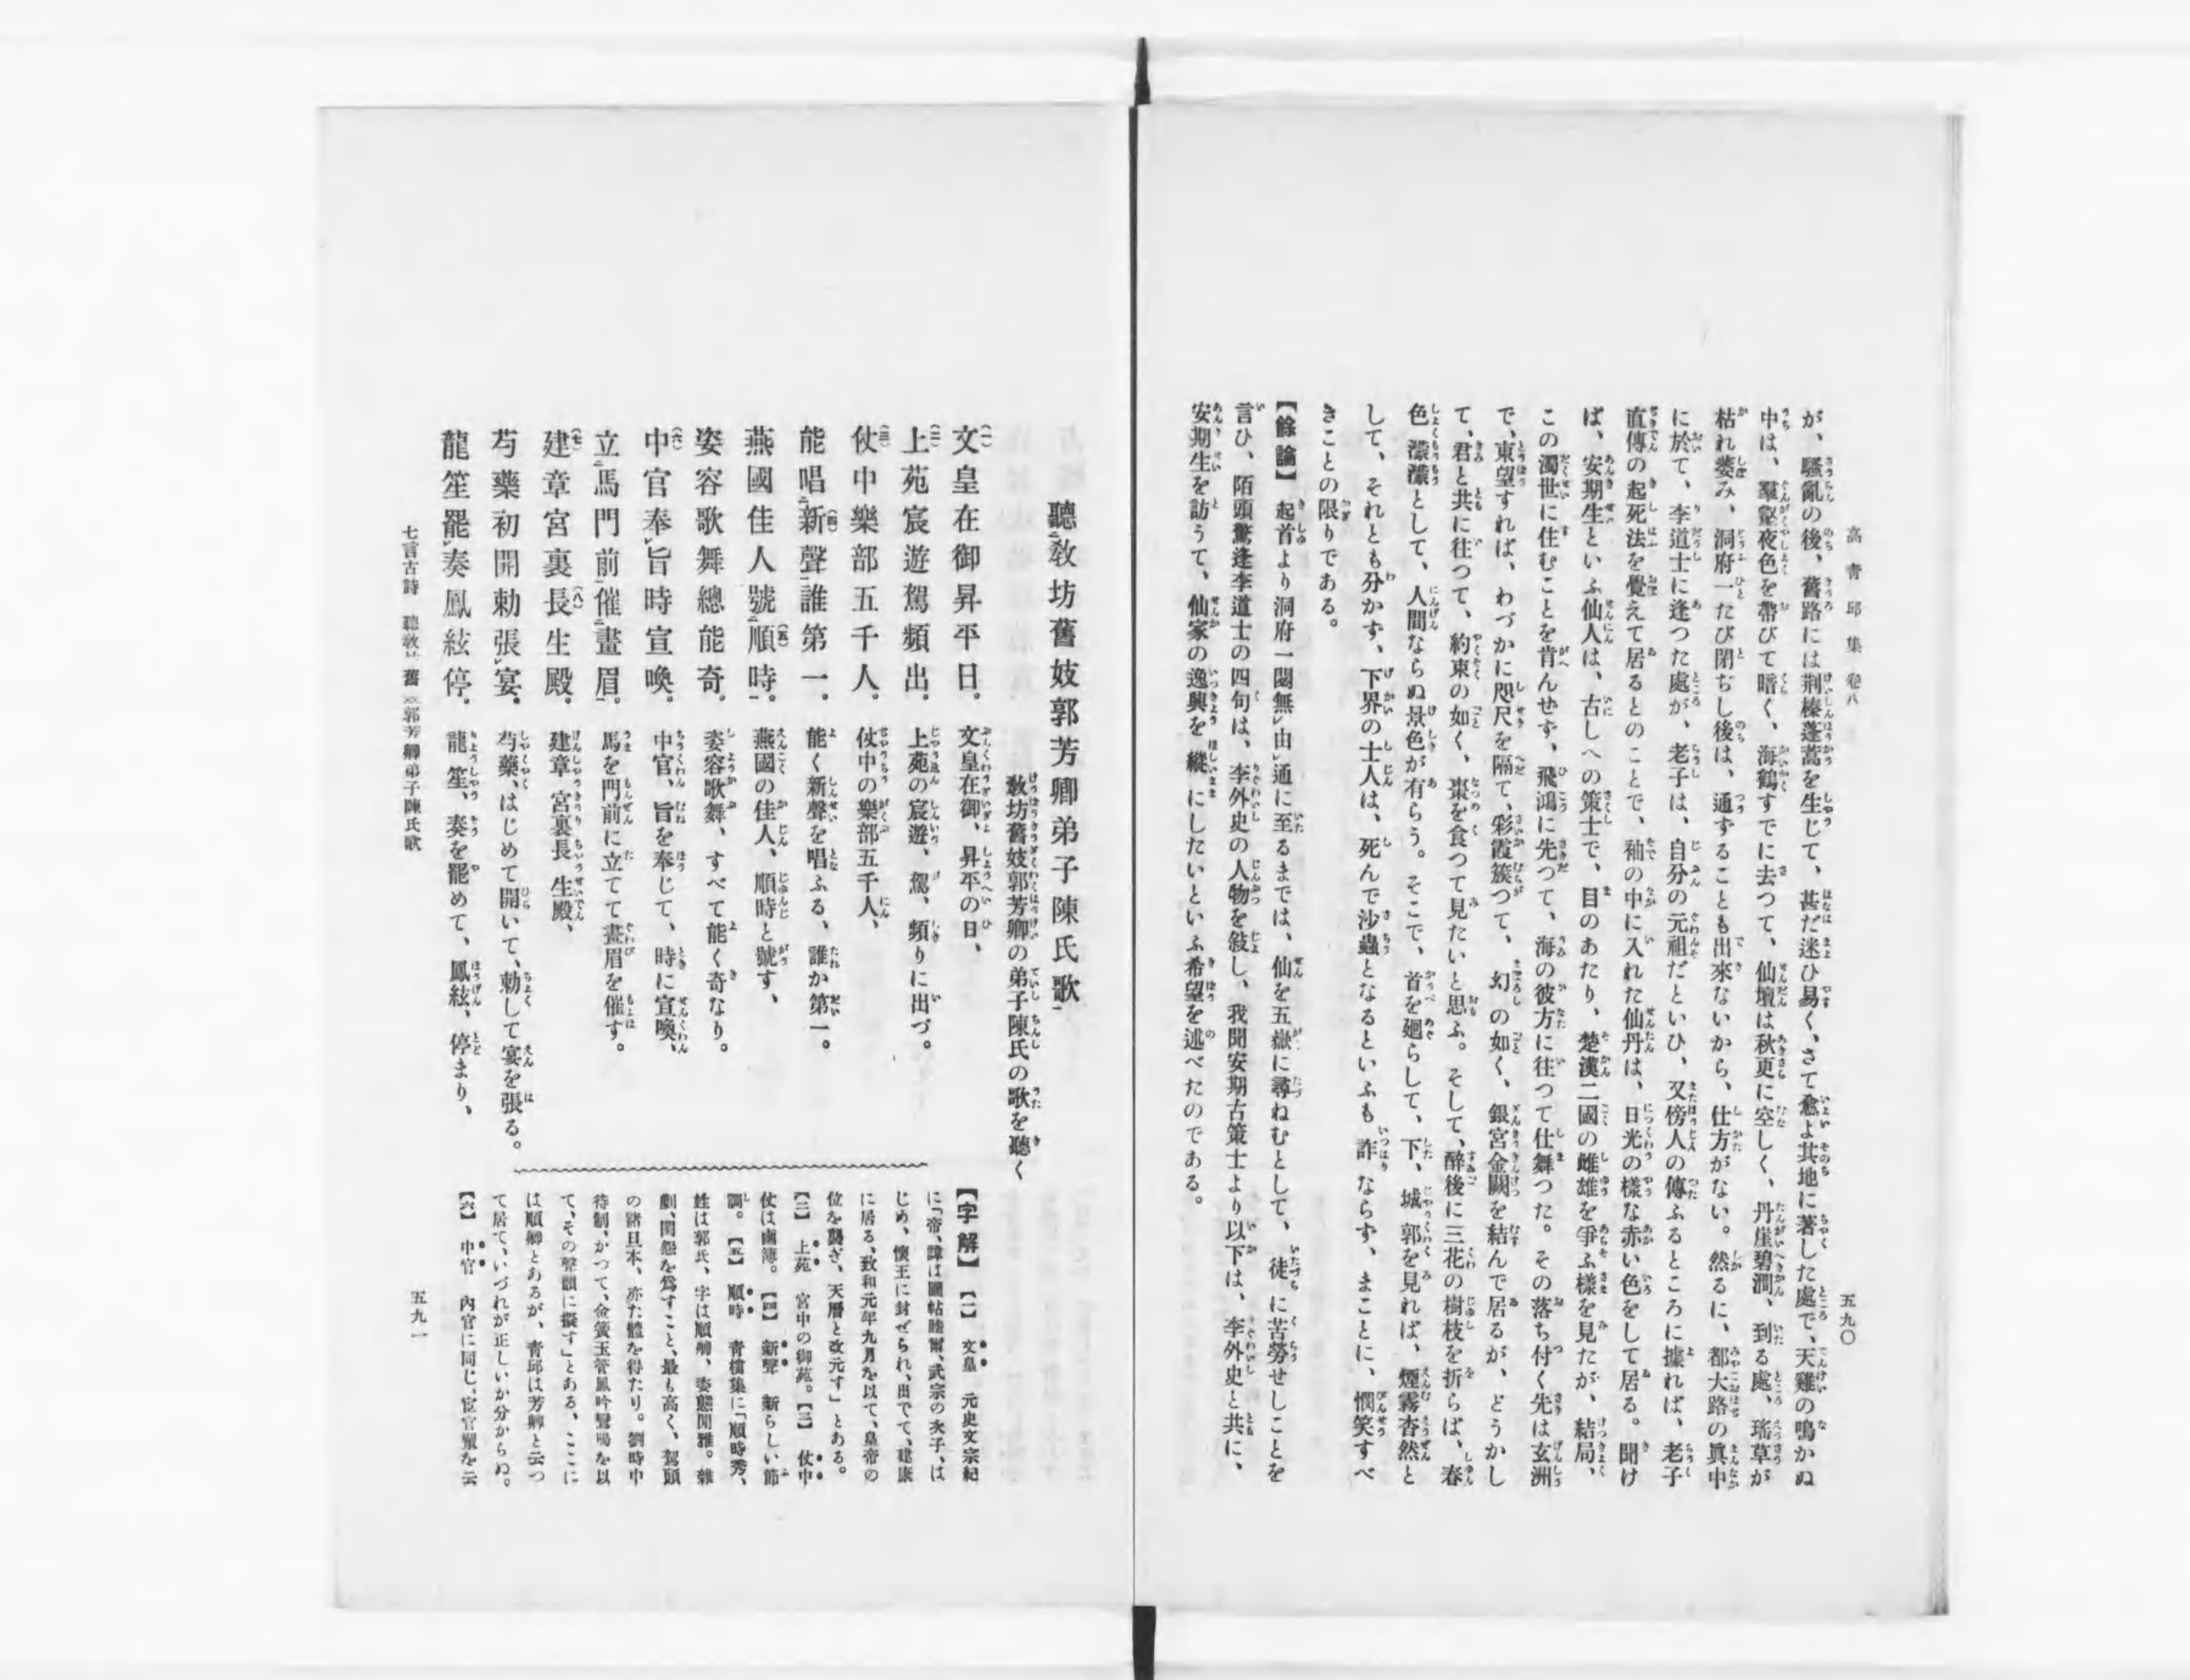 高青邱集 卷八
五九〇
が、騷亂の後、舊路には荆榛蓬蒿を生じて、甚だ迷ひ易く、さて愈よ其地に著した處で、天雞の鳴かぬ
中は、羣壑夜色を帶びて暗く、海鶴すでに去つて、仙壇は秋更に空しく、丹崖碧澗、到る處、瑤草が
枯れ萎み、洞府一たび閉ぢし後は、通ずることも出來ないから、仕方がない。然るに、都大路の眞中
に於て、李道士に逢つた處が、老子は、自分の元祖だといひ、又傍人の傳ふるところに據れば、老子
直傳の起死法を覺えて居るとのことで、秞の中に入れた仙丹は、日光の樣な赤い色をして居る。聞け
ば、安期生といふ仙人は、古しへの策士で、目のあたり、楚漢二國の雌雄を爭ふ樣を見たが、結局、
この濁世に住むことを肯んせず、飛鴻に先つて、海の彼方に往つて仕舞つた。その落ち付く先は玄洲
で、東望すれば、わづかに咫尺を隔て、彩霞簇つて、幻の如く、銀宮金闕を結んで居るが、どうかし
て、君と共に往つて、約束の如く、棗を食つて見たいと思ふ。そして、醉後に三花の樹枝を折らば、春
色濛濛として、人間ならぬ景色が有らう。そこで、首を廻らして、下、城郭を見れば、煙霧杳然と
して、それとも分かず、下界の士人は、死んで沙蟲となるといふも詐ならず、まことに、憫笑すべ
きことの限りである。
【餘論】 起首より洞府一閟無㆑由㆑通に至るまでは、仙を五嶽に尋ねむとして、徒に苦勞せしことを
言ひ、陌頭驚逢李道士の四句は、李外史の人物を敍し、我聞安期古策士より以下は、李外史と共に、
安期生を訪うて、仙家の逸興を縱にしたいといふ希望を述べたのである。
聽㆓敎坊舊妓郭芳卿弟子陳氏歌㆒
敎坊舊妓郭芳卿の弟子陳氏の歌を聽く
文皇在御昇平日。 文皇在御、昇平の日、
上苑宸遊駕頻出。 上苑の宸遊、駕、頻りに出づ。
仗中樂部五千人。 仗中の樂部五千人、
能唱㆓新聲㆒誰第一。 能く新聲を唱ふる、誰か第一。
燕國佳人號㆓順時㆒。 燕國の佳人、順時と號す、
姿容歌舞總能奇。 姿容歌舞、すべて能く奇なり。
中官奉㆑旨時宣喚。 中官、旨を奉じて、時に宣喚、
立㆓馬門前㆒催㆓畫眉㆒。 馬を門前に立てて畫眉を催す。
建章宮裏長生殿。 建章宮裏長生殿、
芍藥初開勅張㆑宴。 芍藥、はじめて開いて、勅して宴を張る。
龍笙罷㆑奏鳳絃停。 龍笙、奏を罷めて、鳳絃、停まり、
【字解】 【一】 文皇 元史文宗紀
に「帝、諱は圖帖睦爾、武宗の次子、は
じめ、懷王に封ぜられ、出でて、建康
に居る、致和元年九月を以て、皇帝の
位を襲ぎ、天曆と改元す」とある。
【二】 上苑 宮中の御苑。【三】 仗中
仗は鹵簿。【四】 新聲 新らしい節
調。【五】 順時 靑樓集に「順時秀、
姓は郭氏、字は順卿、姿態閒雅。雜
劇、閨怨を爲すこと、最も高く、駕頭
の諸旦本、亦た體を得たり。劉時中
待制、かつて、金簧玉管鳳吟鸞鳴を以
て、その聲韻に擬す」とある、ここに
は順卿とあるが、靑邱は芳卿と云つ
て居て、いづれが正しいか分からぬ。
【六】 中官 內官に同じ、宦官輩を云
七言古詩 聽敎坊舊妓郭芳卿弟子陳氏歌
五九一